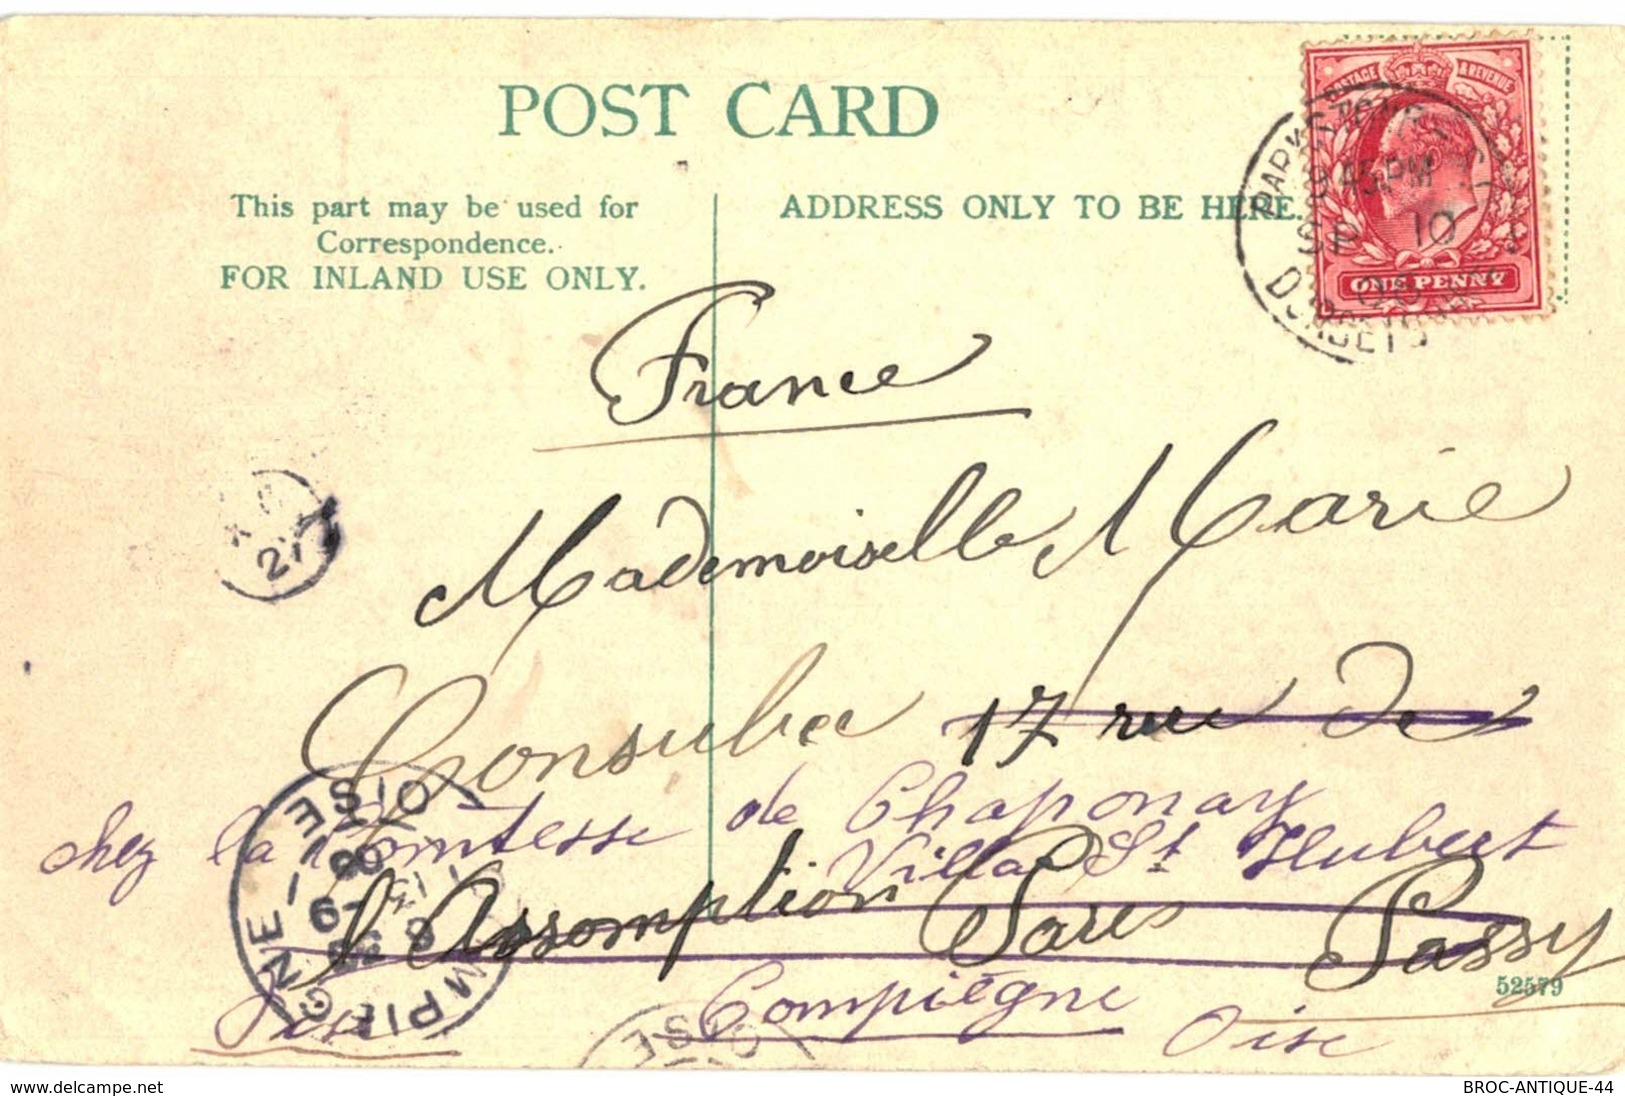 POST CARD
This part may be used for
Correspondence.
FOR INLAND USE ONLY.
ADDRESS ONLY TO BE HERE.
POSTAGE & REVENUE
ONE PENNY
45 PM
10
France
Mademoiselle Marie
17 rue de
chez la Comtesse de Chaponay
Villa St Hubert
l'Assomption Paris Passy
Compiègne
Oise
COMPIEGNE
OISE
52579
www.delcampe.net
BROC-ANTIQUE-44